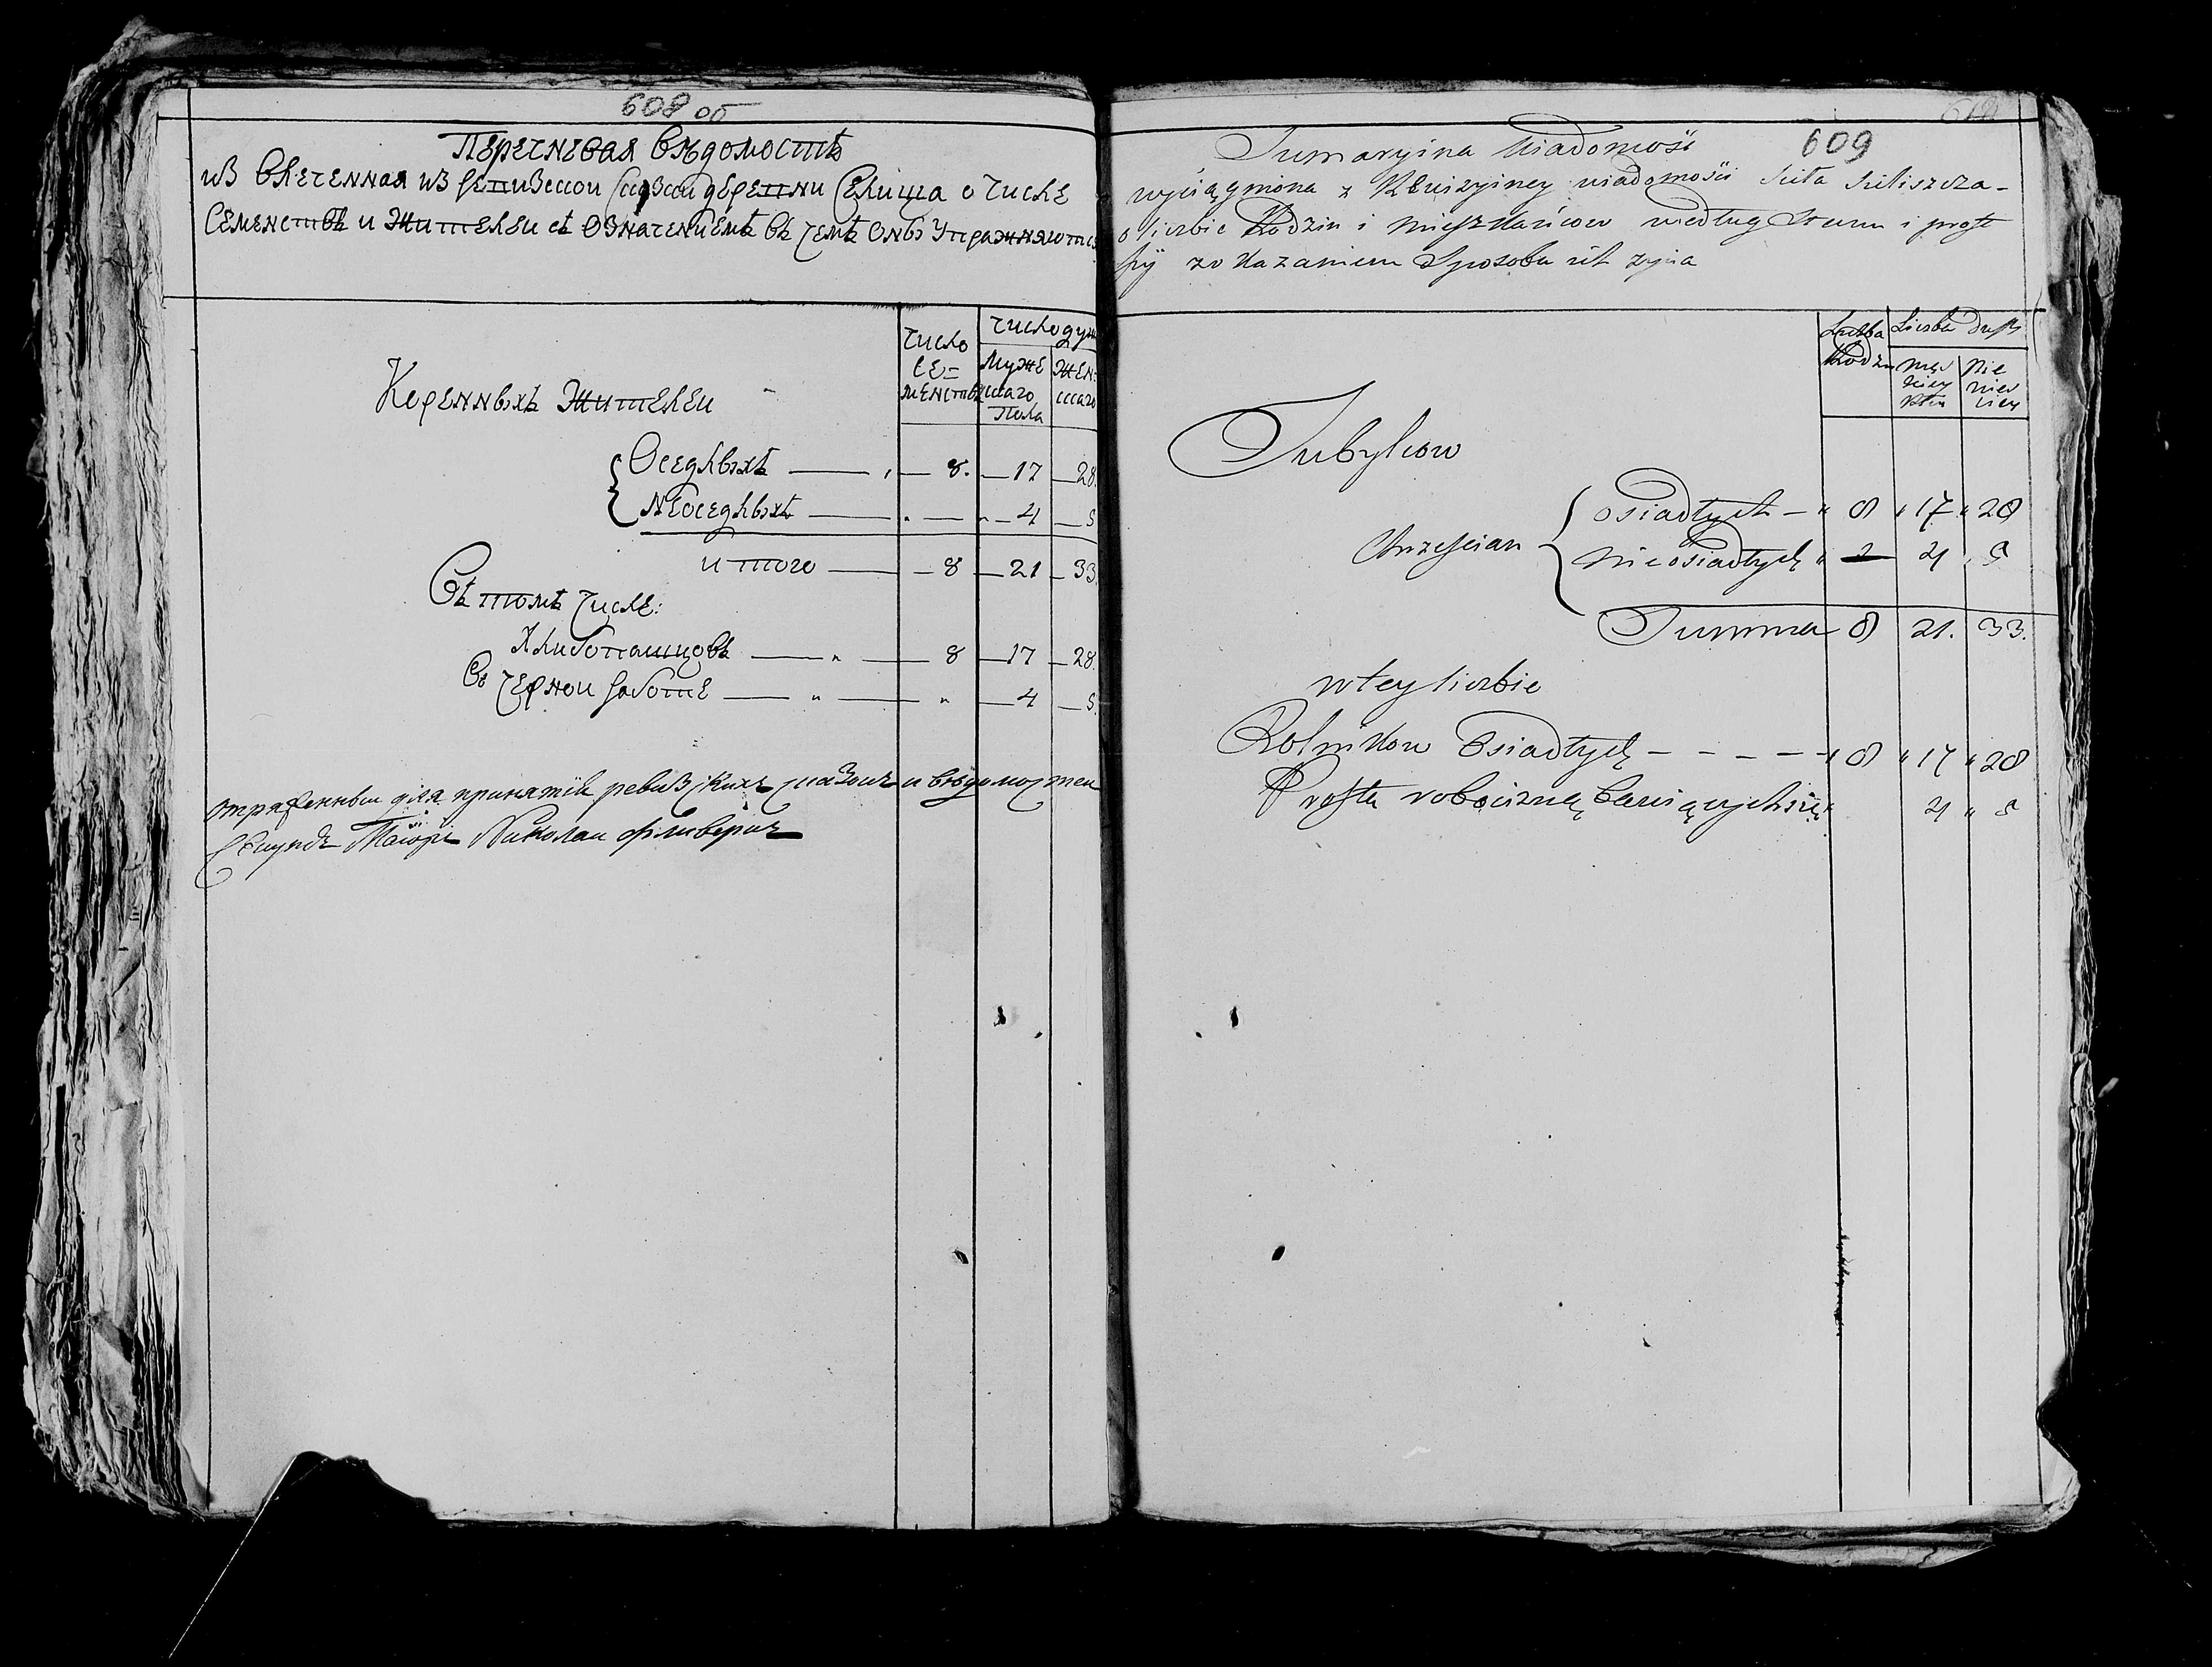 608 об
Перечневая Вѣдомость
изВлеченная из ревизской сказки деревни Селища о числе
Семействъ и Жителей съ Означениемъ въ чемъ Оны Упражняются
число се= менствъ
число душ
мужескаго пола
женскаго
Коренныхъ Жителей
Оседлыхъ — 8. — 17 — 28.
Неоседлыхъ — „ — 4 — 5
итого — 8 — 21 — 33.
Въ томъ числе:
Хлибопашцовъ — „ — 8 — 17 — 28.
Во черной работе — „ — „ — 4 — 5.
отряженный для принятія ревизскихъ сказокъ и вѣдомостей
Секундъ Маіоръ Николай
609
Sumaryina Wiadomość
wyciągniona z Rewizyiney wiadomości Sieła Sieliszcza-
o liczbie Rodzin i Mieszkańcow według Stanu i prof
sÿ zo kazaniem Sposobu ich zycia
Liczba Rodzin
Liczba Dusz
męs kiey płci
Nie wies ciey
Tubylcow
Chrześcian
osiadłych — „ 8 „ 17 „ 28
Nieosiadłych „ — 4 „ 5
Summa 8 21. 33.
w tey liczbie
Rolnikow Osiadłych — — — — „ 8 „ 17 „ 28
Prostą robocizną bawiących się „ 4 „ 5